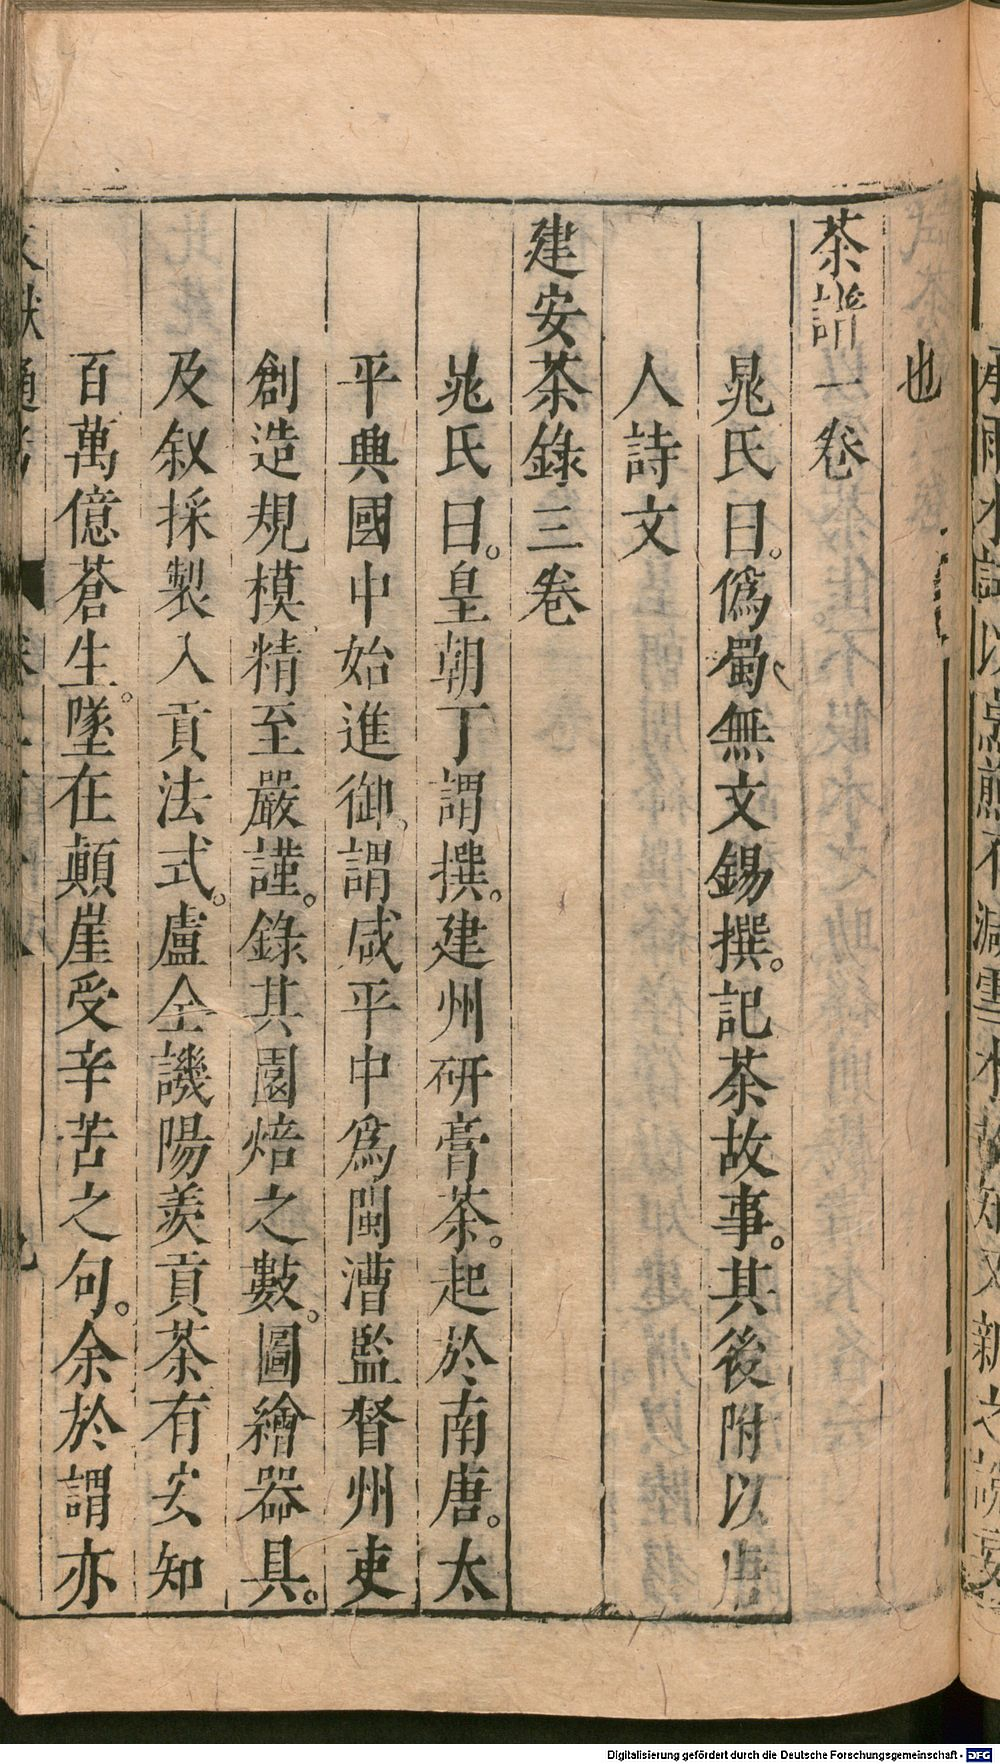 也
茶譜一卷
晁氏曰。僞蜀無文錫撰。記茶故事。其後附以唐
人詩文
建安茶錄三卷
晁氏曰。皇朝丁謂撰。建州研膏茶。起於南唐。太
平典國中始進御。謂咸平中爲閩漕監督州吏
創造規模精至嚴謹。錄其園焙之數。圖繪器具。
及叙採製入貢法式。盧仝譏陽羨貢茶有安知
百萬億蒼生。墜在顛崖受辛苦之句。余於謂亦
Digitalisierung gefördert durch die Deutsche Forschungsgemeinschaft - DFG